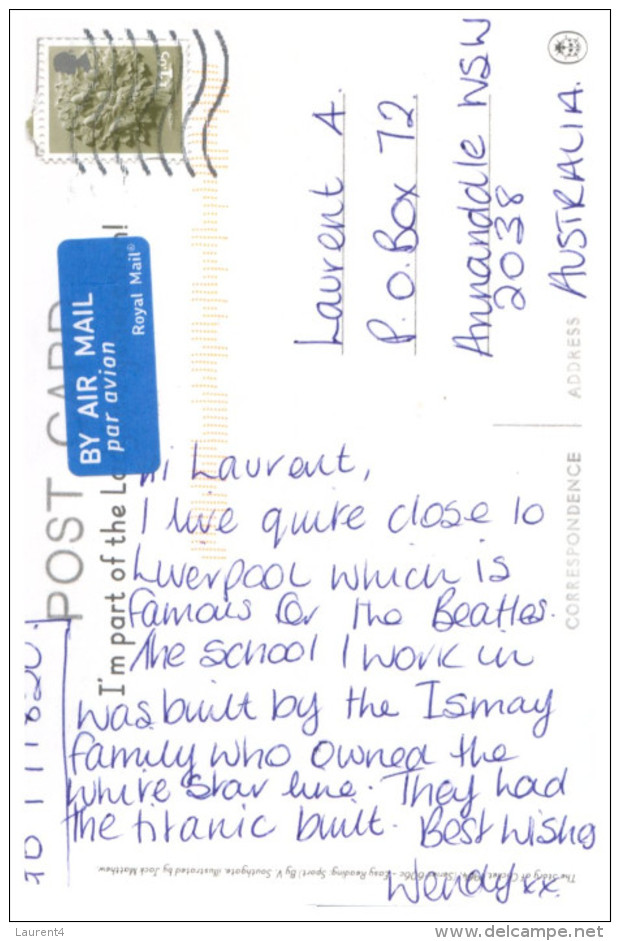 POST CARD
I'm part of the
BY AIR MAIL
par avion
Royal Mail®
Hi Laurent,
I live quite close to
Liverpool which is
famous for the Beatles.
The school I work in
was built by the Ismay
family who owned the
white star line. They had
the titanic built. Best wishes
Wendy xx.
Laurent A.
P.O. Box 72.
Annandale NSW
2038
AUSTRALIA.
CORRESPONDENCE
ADDRESS
The Story of Cricket (Series 606c - Easy Reading: Sport) By V. Southgate, illustrated by Jack Matthew.
Laurent4
www.delcampe.net